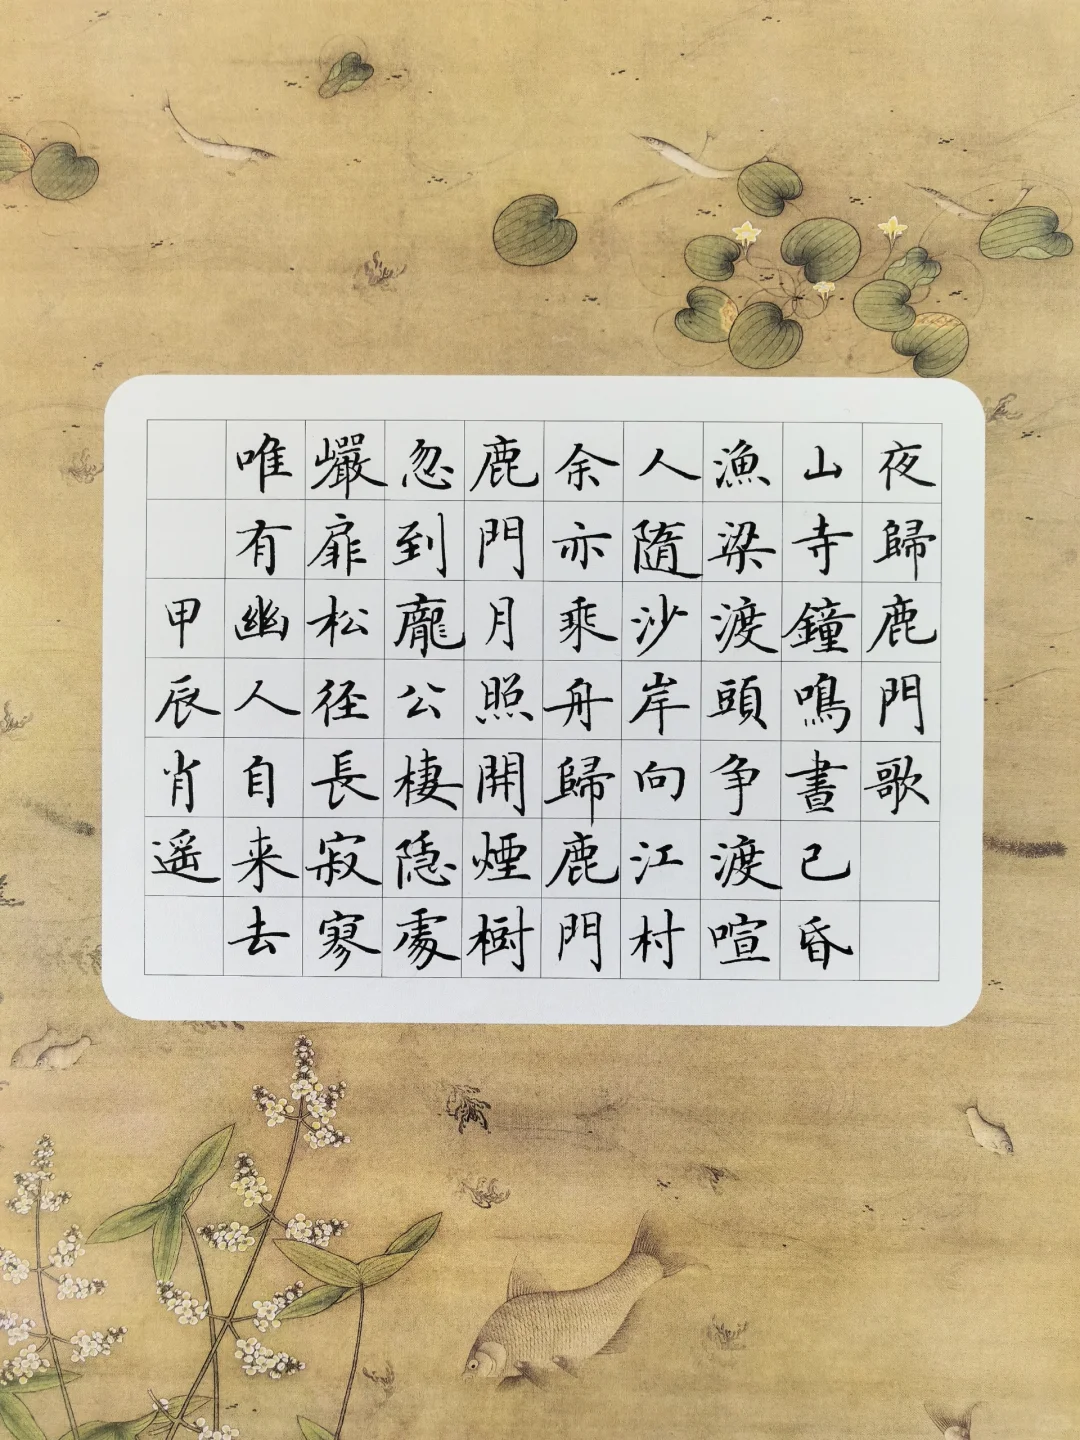 夜歸鹿門歌
山寺鐘鳴晝已昏
漁梁渡頭争渡喧
人隨沙岸向江村
余亦乘舟歸鹿門
鹿門月照開煙樹
忽到龐公棲隱處
巖扉松徑長寂寥
唯有幽人自来去
甲辰肖遥